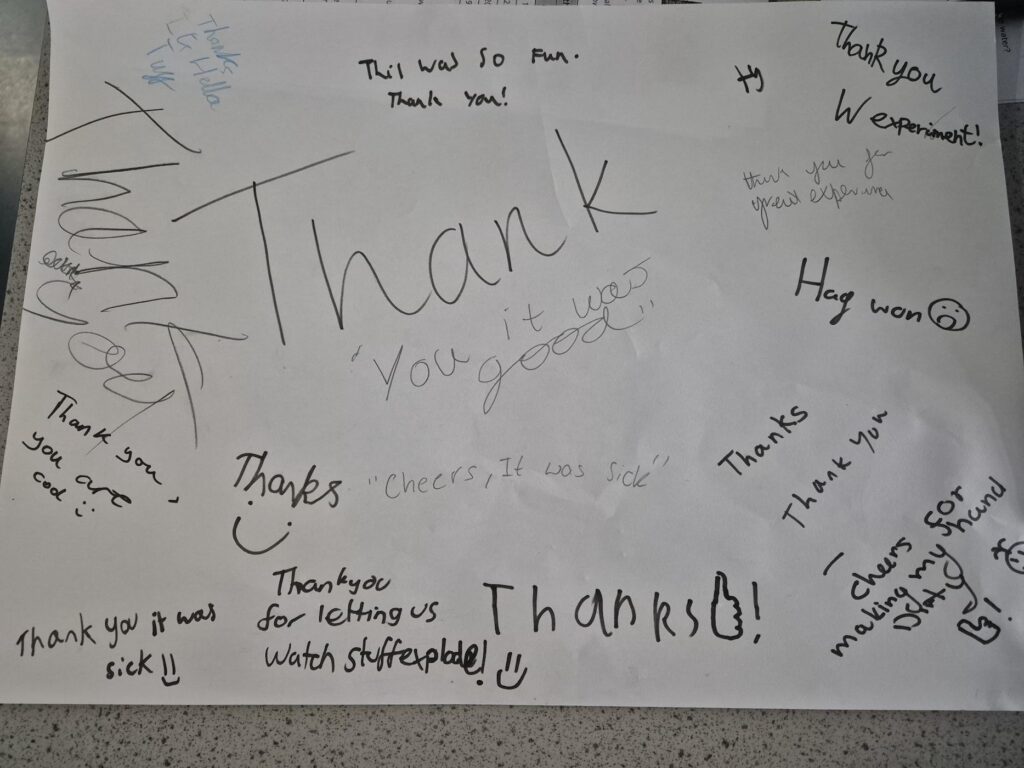 Thanks
Hella
Tuff
This was so Fun.
Thank you!
ty
Thank you
W experiment!
thank you for
great experimen
Thank
you
Thank
"You it was
good"
Hag won
Thank you,
you are
cool
Thanks
"Cheers, It was sick"
Thanks
Thank you
Thank you it was
sick !!
Thankyou
for letting us
watch stuff explode!
Thanks !
- cheers for
making my hand